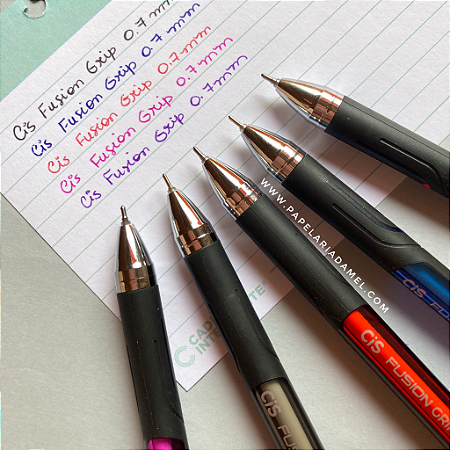 Cis Fusion Grip 0.7mm
Cis Fusion Grip 0.7mm
Cis Fusion Grip 0.7mm
Cis Fusion Grip 0.7mm
Cis Fusion Grip 0.7mm
WWW.PAPELARIADAMEL.COM
CiS
CiS FUSION GRIP
CiS